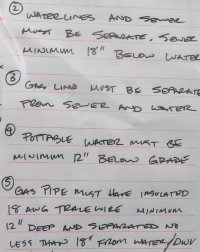 ② WATER LINES AND SEWER
MUST BE SEPARATE. SEWER
MINIMUM 18" BELOW WATER
③ GAS LINE MUST BE SEPARATE
FROM SEWER AND WATER
④ POTTABLE WATER MUST BE
MINIMUM 12" BELOW GRADE
⑤ GAS PIPE MUST HAVE INSULATED
18 AWG TRACE WIRE MINIMUM
12" DEEP AND SEPARATED NO
LESS THAN 18" FROM WATER/DWV